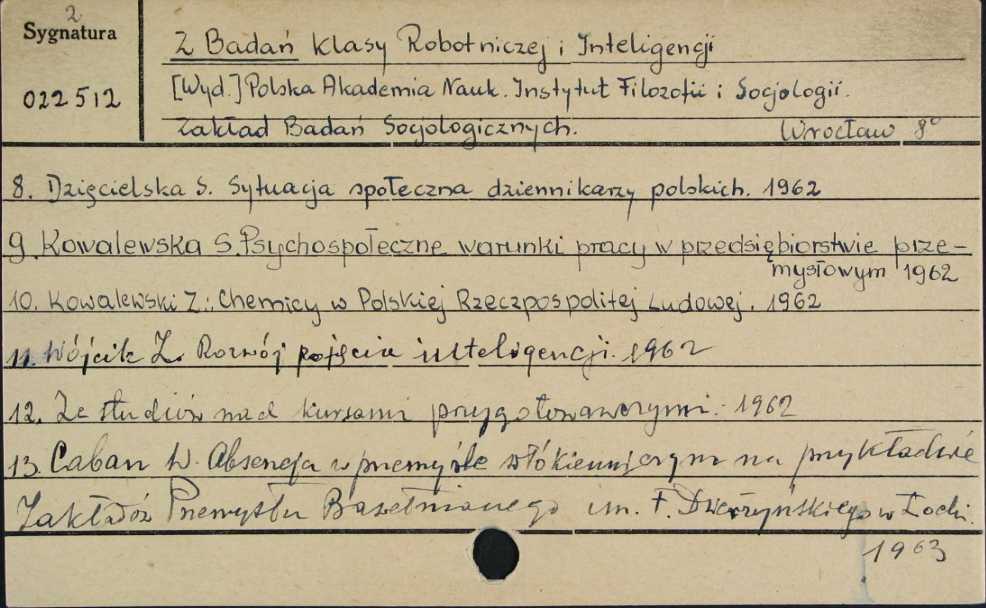 2
Sygnatura
022512
Z Badań Klasy Robotniczej i Inteligencji
[Wyd.] Polska Akademia Nauk. Instytut Filozofii i Socjologii.
Zakład Badań Socjologicznych. Wrocław 8°
8. Dzięcielska S. Sytuacja społeczna dziennikarzy polskich. 1962
9. Kowalewska S. Psychospołeczne warunki pracy w przedsiębiorstwie prze-
mysłowym 1962
10. Kowalewski Z.: Chemicy w Polskiej Rzeczpospolitej Ludowej. 1962
11. Wójcik Z. Rozwój pojęcia inteligencji. 1962
12. Ze studiów nad kursami przygotowawczymi. 1962
13. Caban W. Absencja w przemyśle włókienniczym na przykładzie
Zakładów Przemysłu Bawełnianego im. F. Dzierżyńskiego w Łodzi.
1963